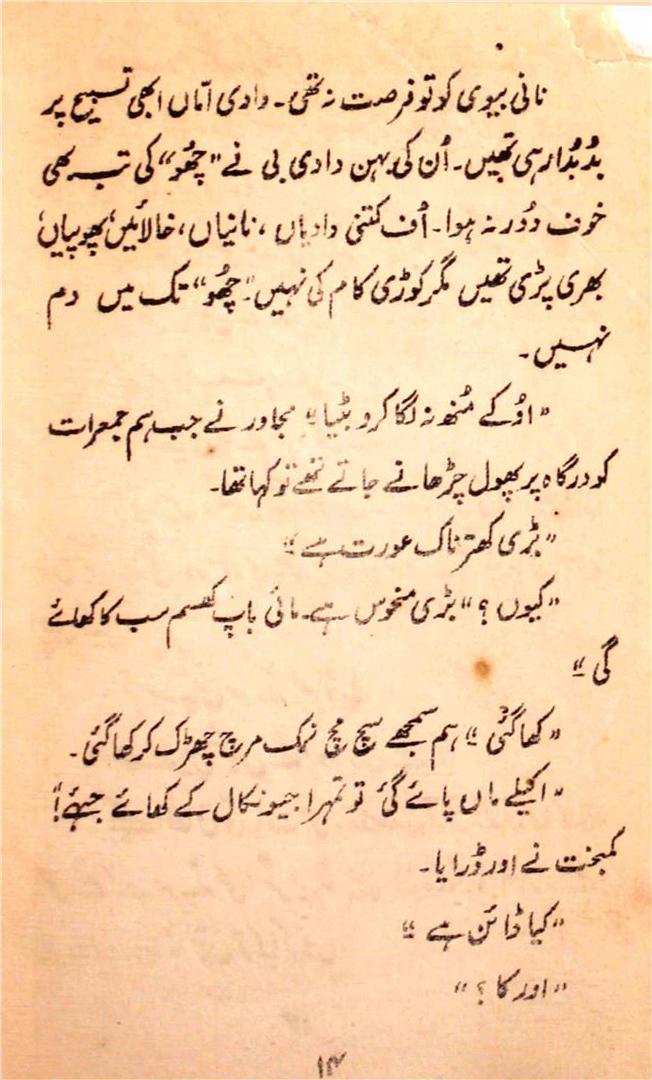 نانی بیوی کو تو فرصت نہ تھی۔ دادی اماں ابھی تسبیح پر
بُدبُدا رہی تھیں۔ اُن کی بہن دادی بی نے "چھُو" کی تب بھی
خوف دُور نہ ہوا۔ اُف کتنی دادیاں، نانیاں، خالائیں، پھوپیاں
بھری پڑی تھیں مگر کوڑی کام کی نہیں۔ "چھُو" تک میں دم
نہیں۔
"اوُ کے مُنھ نہ لگا کرو بٹیا" مجاور نے جب ہم جمعرات
کو درگاہ پر پھول چڑھانے جاتے تھے تو کہا تھا۔
"بڑی کھترناک عورت ہے"
"کیوں؟" "بڑی منحوس ہے۔ مائی باپ کھسم سب کا کھائے
گی"
"کھا گئی" ہم سمجھے سچ مچ نمک مرچ چھڑک کر کھا گئی۔
"اکیلے ماں پائے گی تو تمہرا جیو نکال کے کھائے جیہے!"
کمبخت نے اور ڈرایا۔
"کیا ڈائن ہے"
"اور کا؟"
۱۴